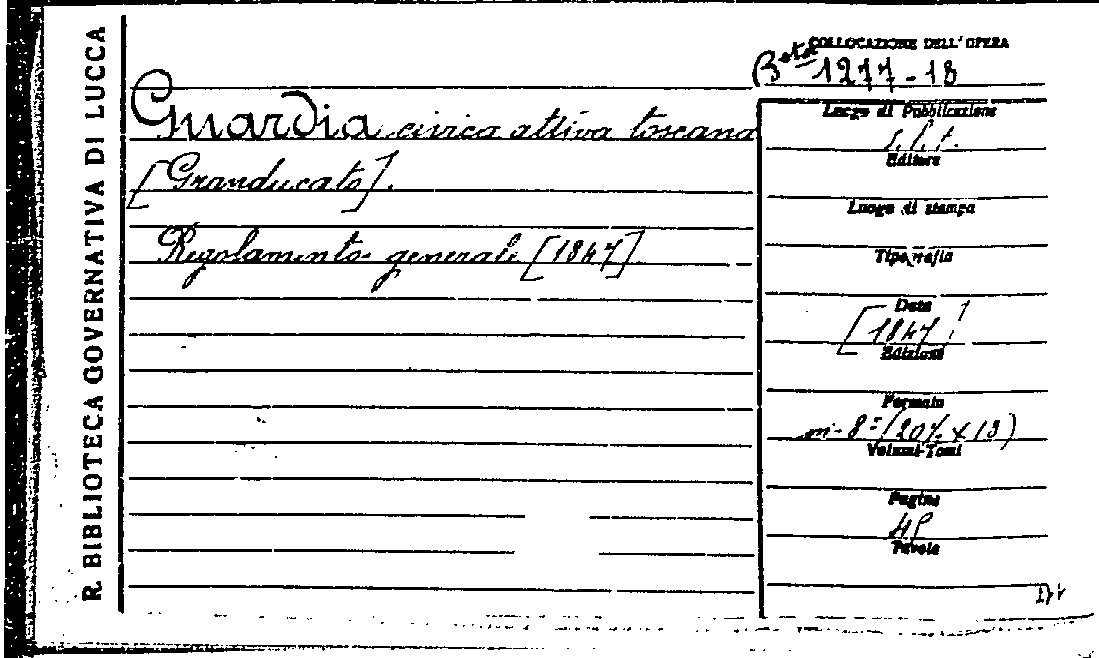 R. BIBLIOTECA GOVERNATIVA DI LUCCA
COLLOCAZIONE DELL'OPERA
Bta 1277-18
Guardia civica attiva toscana
[Granducato].
Regolamento generale [1847].
Luogo di Pubblicazione
s.l.t.
Editore
Luogo di stampa
Tipografia
Data
[1847]
Edizione
Formato
in-8° (20½ x 13)
Volumi-Tomi
Pagine
Tavole